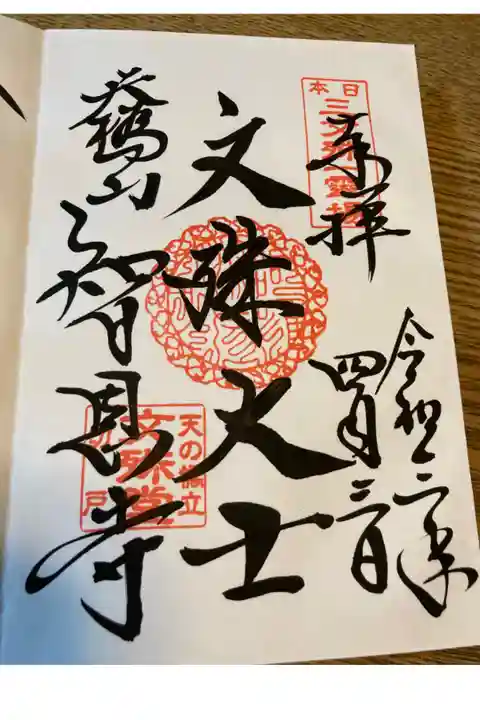 日本
三文殊霊場
奉拝
令和二年
四月三日
文殊大士
天橋山
智恩寺
天の橋立
文殊堂
切戸